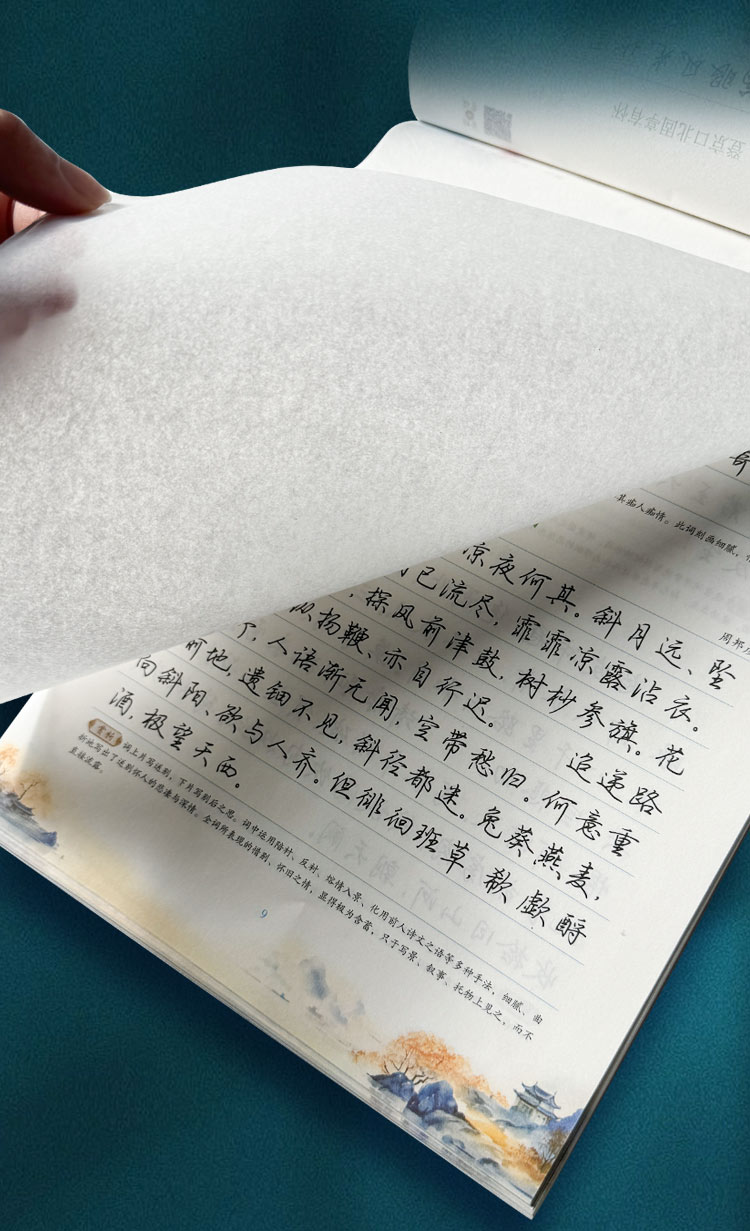 登京口北固亭有怀
眼风光
其痴人痴情。此词刻画细腻，
周邦
凉夜何其。斜月远、坠
已流尽，霏霏凉露沾衣。
，探风前津鼓，树杪参旗。花
扬鞭、亦自行迟。 迢递路
，人语渐无闻，空带愁归。何意重
前地，遗钿不见，斜径都迷。兔葵燕麦，
向斜阳、欲与人齐。但徘徊班草，欷歔酹
酒，极望天西。
赏析 词上片写送别，下片写别后之思。词中运用陪衬、反衬、熔情入景、化用前人诗文之语等多种手法，细腻、曲
折地写出了送别怀人的悲凄与深情。全词所表现的惜别、怀旧之情，显得极为含蓄，只于写景、叙事、托物上见之，而不
直接流露。
9